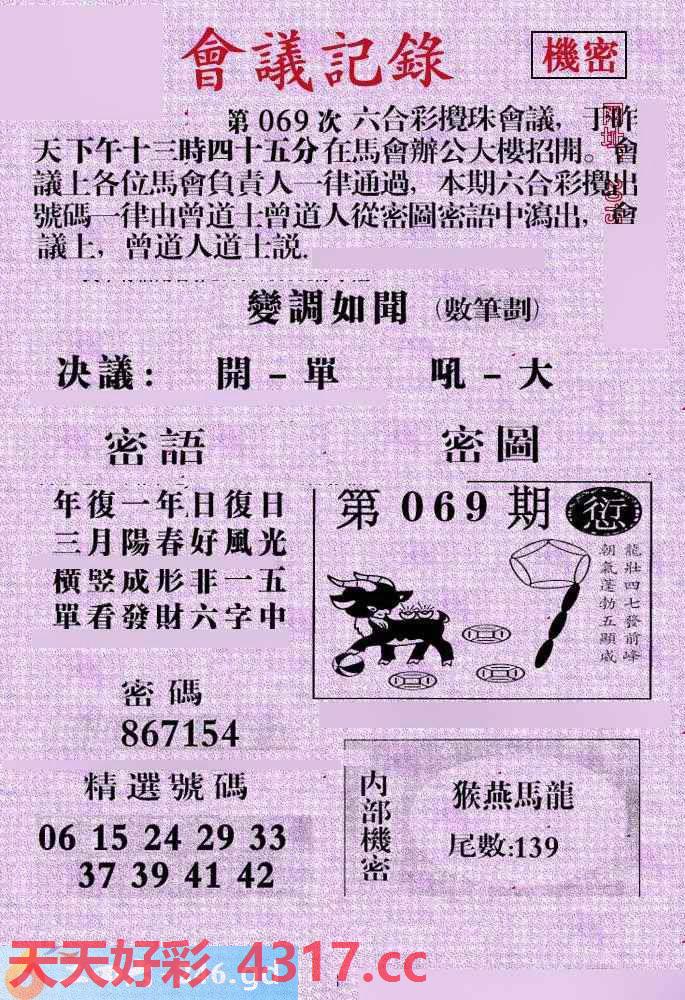 會議記錄
機密
第 069 次 六合彩攪珠會議, 于昨
天下午十三時四十五分在馬會辦公大樓招開。會
議上各位馬會負責人一律通過, 本期六合彩攪出
號碼一律由曾道士曾道人從密圖密語中瀉出, 會
議上, 曾道人道士説.
變調如聞 (數筆劃)
决議: 開-單 吼-大
密語
年復一年日復日
三月陽春好風光
橫竪成形非一五
單看發財六字中
密圖
第069期
愆
龍壯四七發前峰
朝氣蓬勃五顯威
密碼
867154
精選號碼
06 15 24 29 33
37 39 41 42
内部機密
猴燕馬龍
尾數:139
天天好彩 4317.cc